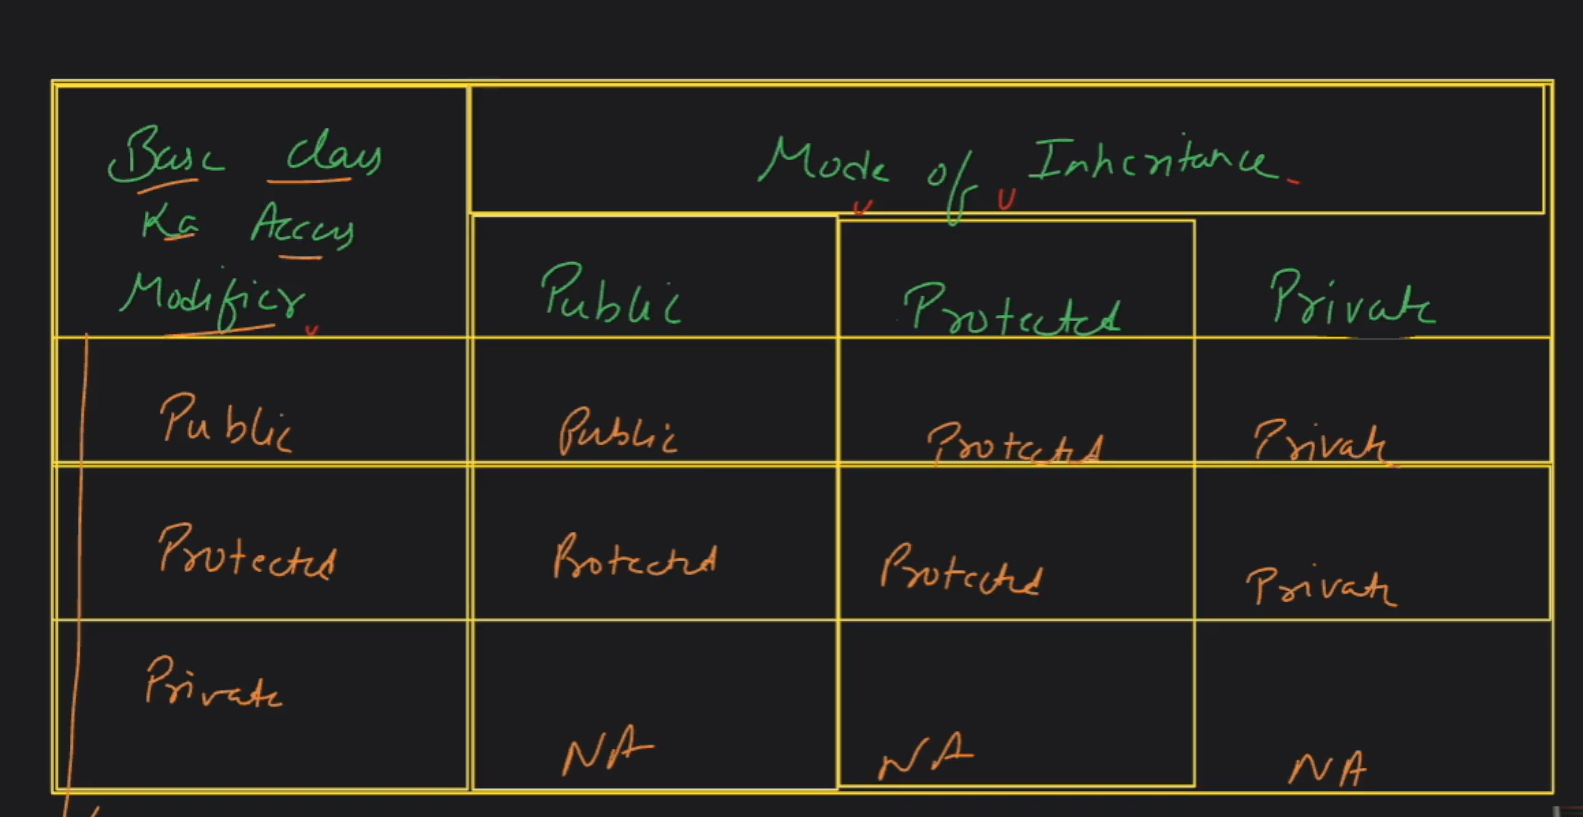 Base class
Ka Access
Modifier
Mode of Inheritance
Public Protected Private
Public Public Protected Private
Protected Protected Protected Private
Private NA NA NA